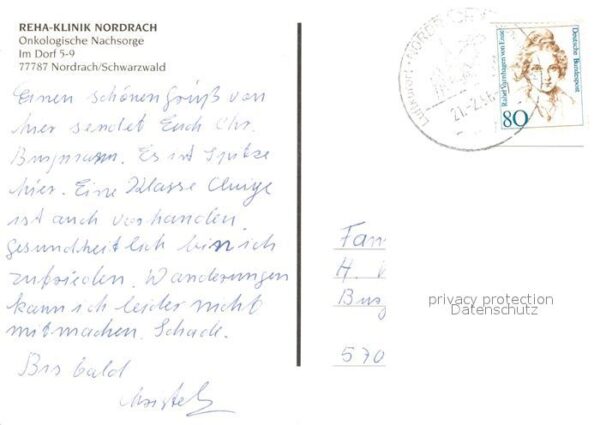 REHA-KLINIK NORDRACH
Onkologische Nachsorge
Im Dorf 5-9
77787 Nordrach/Schwarzwald
Einen schönen Gruß von
hier sendet Euch Chr.
Burgmann. Es ist Spitze
hier. Eine Klasse Clique
ist auch vorhanden,
gesundheitlich bin ich
zufrieden. Wanderungen
kann ich leider nicht
mitmachen. Schade.
Bis bald
Christel
Deutsche Bundespost
Rahel Varnhagen von Ense
80
Fam
H.
Burg
570
privacy protection
Datenschutz